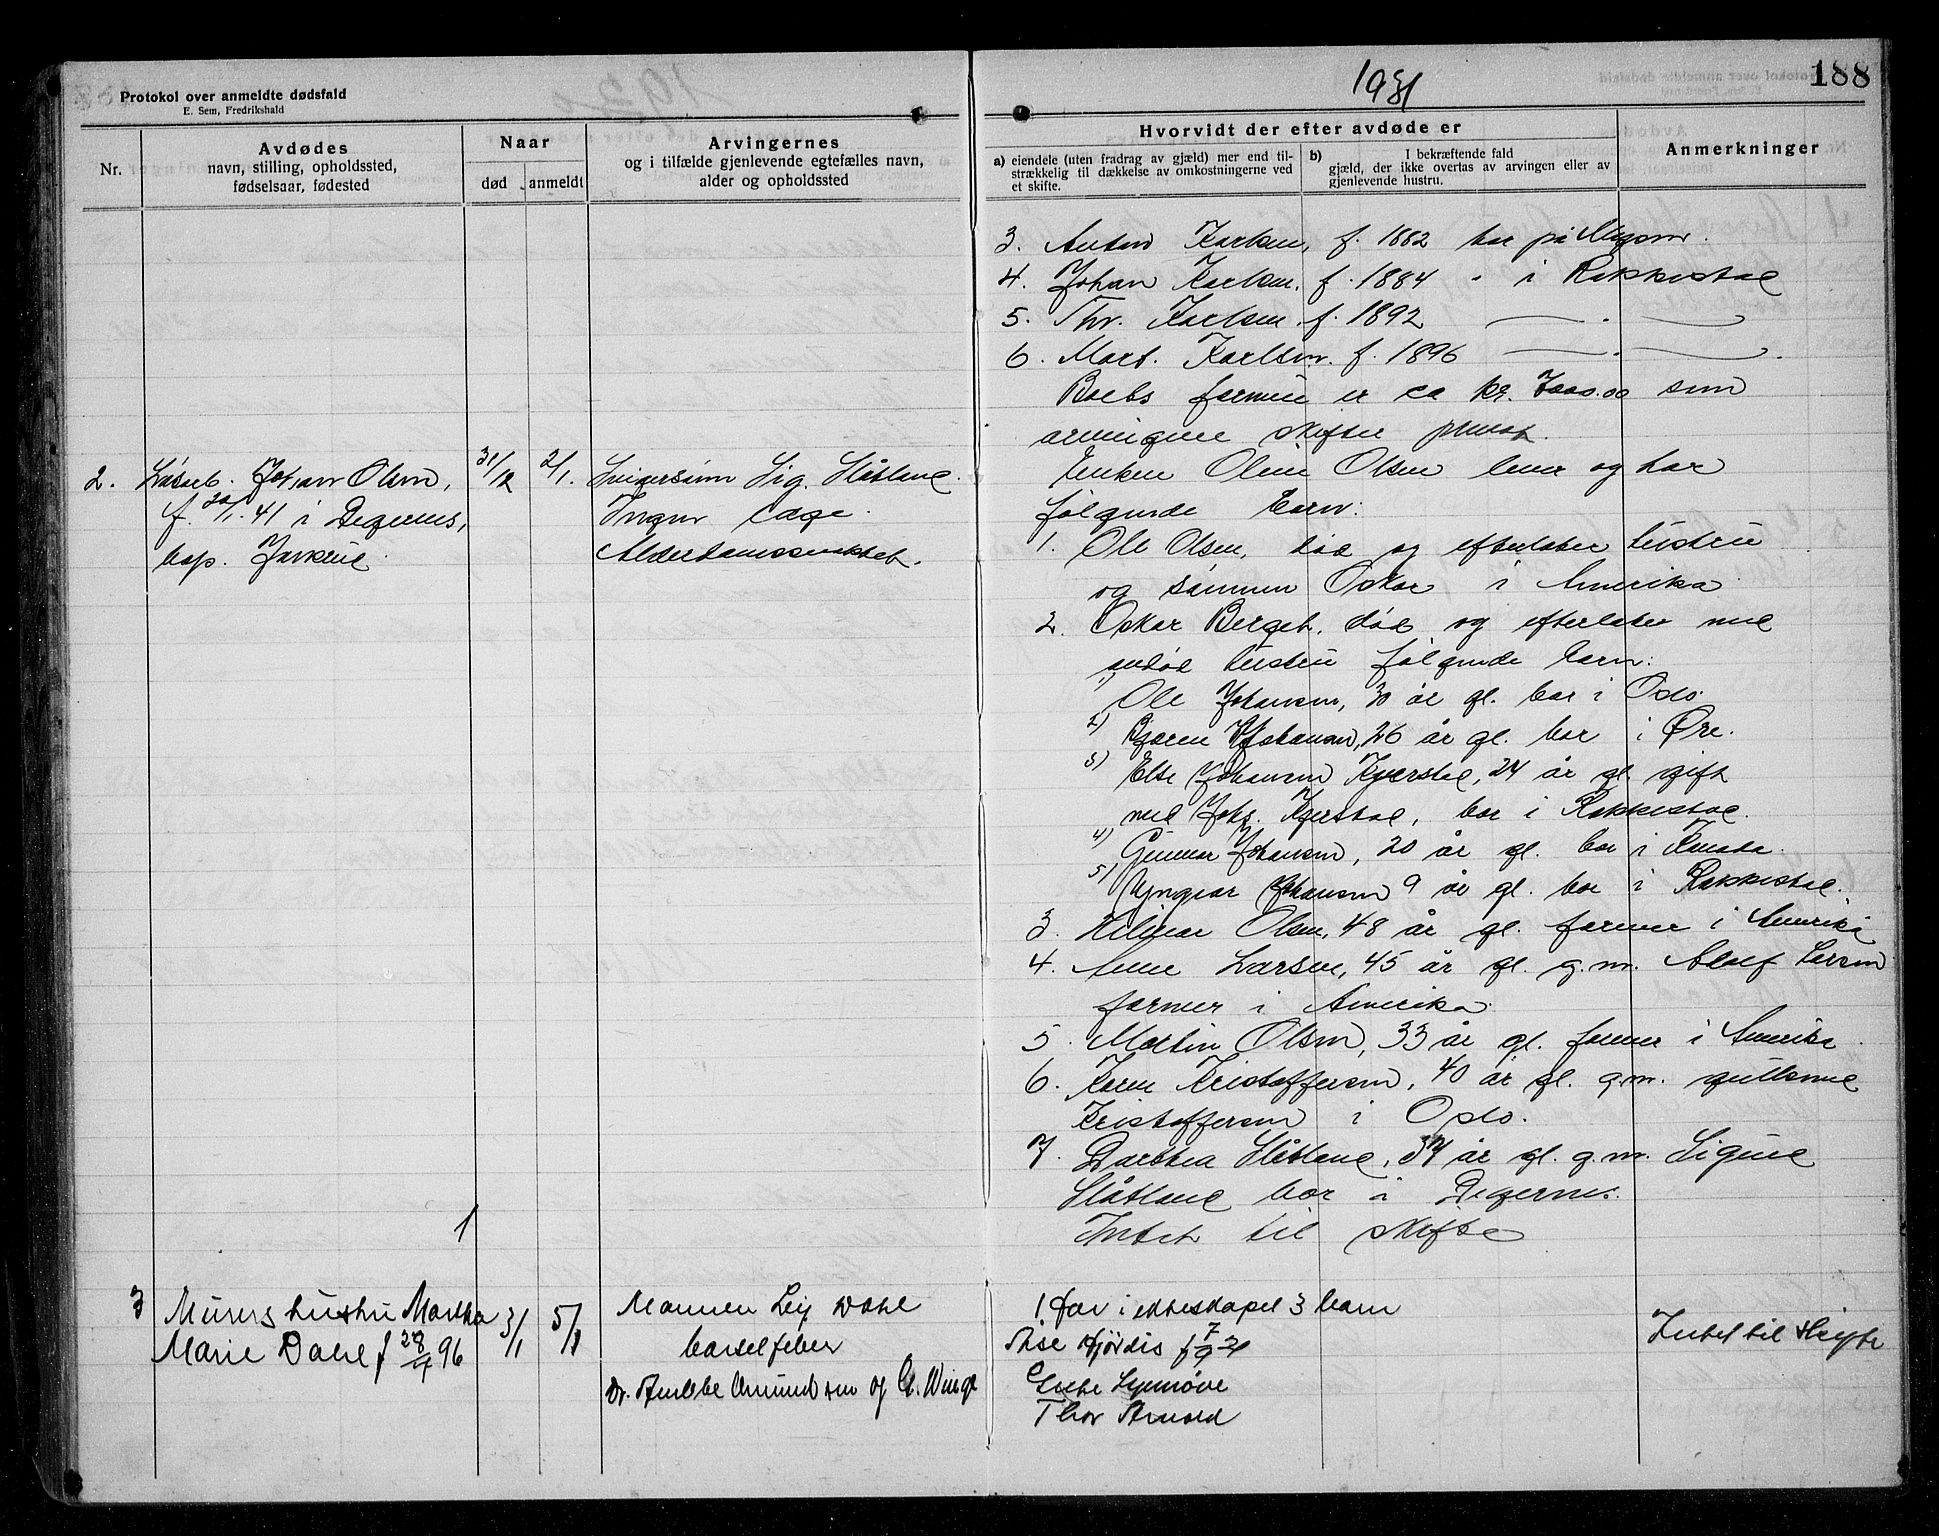 1931
188
Protokol over anmeldte dødsfald
E. Sem, Fredrikshald
Nr.
Avdødes
navn, stilling, opholdssted,
fødselsaar, fødested
Naar
død
anmeldt
Arvingernes
og i tilfælde gjenlevende egtefælles navn,
alder og opholdssted
Hvorvidt der efter avdøde er
a) eiendele (uten fradrag av gjæld) mer end til-
strækkelig til dækkelse av omkostningerne ved
et skifte.
b) I bekræftende fald
gjæld, der ikke overtas av arvingen eller av
gjenlevende hustru.
Anmerkninger
3. Anton Karlsen, f. 1882 bor på
4. Johan Karlsen, f. 1884 " i Rakkestad
5. Thv. Karlsen f. 1892 — " —
6. Mart. Karlsen f. 1896 — " —
Boets formue er ca kr. 7000.00 som
arvingene skifter privat.
2. Løsarb. Johan Olsen,
f. 20/1.41 i Degernes,
bop. Jaskrue.
31/12
2/1.
Svigersønn Sig. Slåtland.
Ingen læge.
Alderdomssvakhet.
Enken Oline Olsen lever og har
følgende barn:
1. Ole Olsen, død og efterlater hustru
og sønnen Oskar i Amerika
2. Oskar Berget, død og efterlater med
avdød hustru følgende barn:
1) Ole Johansen, 30 år gl. bor i Oslo.
2) Bjarne Johansen, 26 år gl. bor i Øre.
3) Else Johansen Kjerstad, 24 år gl. gift
med Johs. Kjerstad, bor i Rakkestad.
4) Gunnar Johansen, 20 år gl. bor i Kanada.
5) Yngvar Johansen 9 år gl. bor i Rakkestad.
3. Hilmar Olsen, 48 år gl. farmer i Amerika
4. Anne Larsen, 45 år gl. g.m. Adolf Larsen
farmer i Amerika.
5. Martin Olsen, 33 år gl. farmer i Amerika
6. Karen Kristoffersen, 40 år gl. g.m. gullsmed
Kristoffersen i Oslo.
7. Dorthea Slåtland, 37 år gl. g.m. Sigurd
Slåtland bor i Degernes.
Intet til skifte
1
3 Murers hustru Martha
Marie Dahl f 28/4 96
3/1
5/1
Mannen Leif Dahl
barselfeber
Dr. Amundsen og G. Winge
1 Har i ekteskapet 3 barn
Åse Hjørdis f 7/9 21
Grete Synnøve
Thor Arnold
Intet til skifte